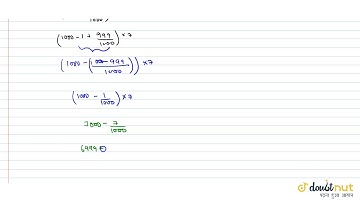 1000)
(1000 - 1 + 999/1000) × 7
(1000 - (1000 - 999/1000)) × 7
(1000 - 1/1000) × 7
7000 - 7/1000
6999
doubtnut